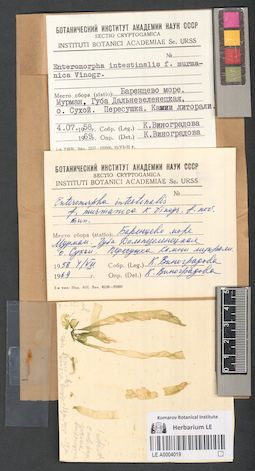 БОТАНИЧЕСКИЙ ИНСТИТУТ АКАДЕМИИ НАУК СССР
SECTIO CRYPTOGAMICA
INSTITUTI BOTANICI ACADEMIAE Sc. URSS
Enteromorpha intestinalis f. murma-
nica Vinogr.
Место сбора (statio). Баренцево море.
Мурман, Губа Дальнезеленецкая,
о. Сухой. Пересушка. Камни литорали.
4.07.1958, Собр. (Leg.) К.Виноградова
1969. Опр. (Det.) К.Виноградова
БОТАНИЧЕСКИЙ ИНСТИТУТ АКАДЕМИИ НАУК СССР
SECTIO CRYPTOGAMICA
INSTITUTI BOTANICI ACADEMIAE Sc. URSS
Enteromorpha intestinalis
f. murmanica K. Vinogr. f. nov.
Место сбора (statio). Баренцево море
Мурман. Губа Дальнезеленецкая
о. Сухой. Пересушка камни литорали
1958 4/VII Собр. (Leg.) К. Виноградова
1969 Опр. (Det.) К. Виноградова
Komarov Botanical Institute
Herbarium LE
LE A0004019